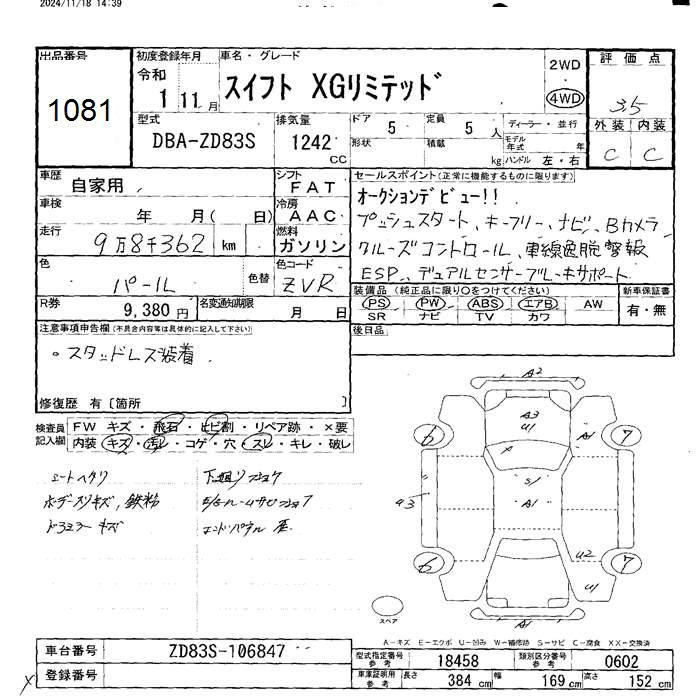 2024/11/18 14:39
出品番号
1081
初度登録年月
令和
1 11 月
車名・グレード
スイフト XGリミテッド
2WD
4WD
評価点
3.5
外装 内装
C C
型式
DBA-ZD83S
排気量
1242 CC
ドア 5
形状
定員 5 人
積載 kg
ディーラー・並行
モデル年式 年
ハンドル 左・右
車歴
自家用
シフト
FAT
車検
年 月( 日)
冷房
AAC
走行
9万8千362 km
燃料
ガソリン
色
パール
色替
色コード
ZVR
R券 9,380 円
名変通知期限 月 日
セールスポイント(正常に機能するものに限ります)
オークションデビュー!!
プッシュスタート、キーフリー、ナビ、Bカメラ
クルーズコントロール、車線逸脱警報
ESP、デュアルセンサーブレーキサポート
装備品(純正品に限り○をつけてください)
PS PW ABS エアB AW
SR ナビ TV カワ
新車保証書
有・無
後日品
注意事項申告欄(不具合内容等は具体的に記入して下さい)
。スタッドレス装着
修復歴 有[箇所 ]
検査員記入欄
FW キズ・飛石・ヒビ割・リペア跡・×要
内装 キズ・汚レ・コゲ・穴・スレ・キレ・破レ
シートヘタリ
ボデースリキズ,鉄粉
ドアミラーキズ
下廻リ
A2
A3
U1
A1
S1
A1
A3
U2
U1
A1
6 7
6 7
スペア
A-キズ E-エクボ U-凹み W-補修跡 S-サビ C-腐食 XX-交換済
車台番号 ZD83S-106847
登録番号
型式指定番号 参考 18458
類別区分番号 参考 0602
車庫証明用 参考 長さ 384 cm 幅 169 cm 高さ 152 cm